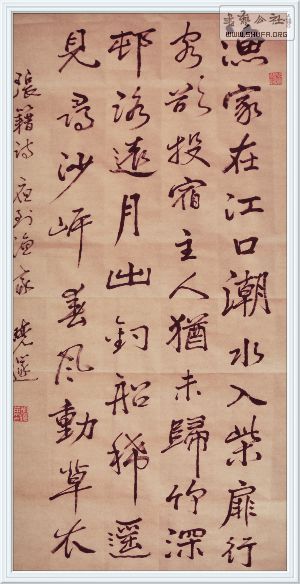 漁家在江口潮水入柴扉行
客欲投宿主人猶未歸竹深
邨路遠月出釣船稀遥
見尋沙岸春风動草衣
張籍詩 夜到漁家
书艺公社
WWW.SHUFA.ORG